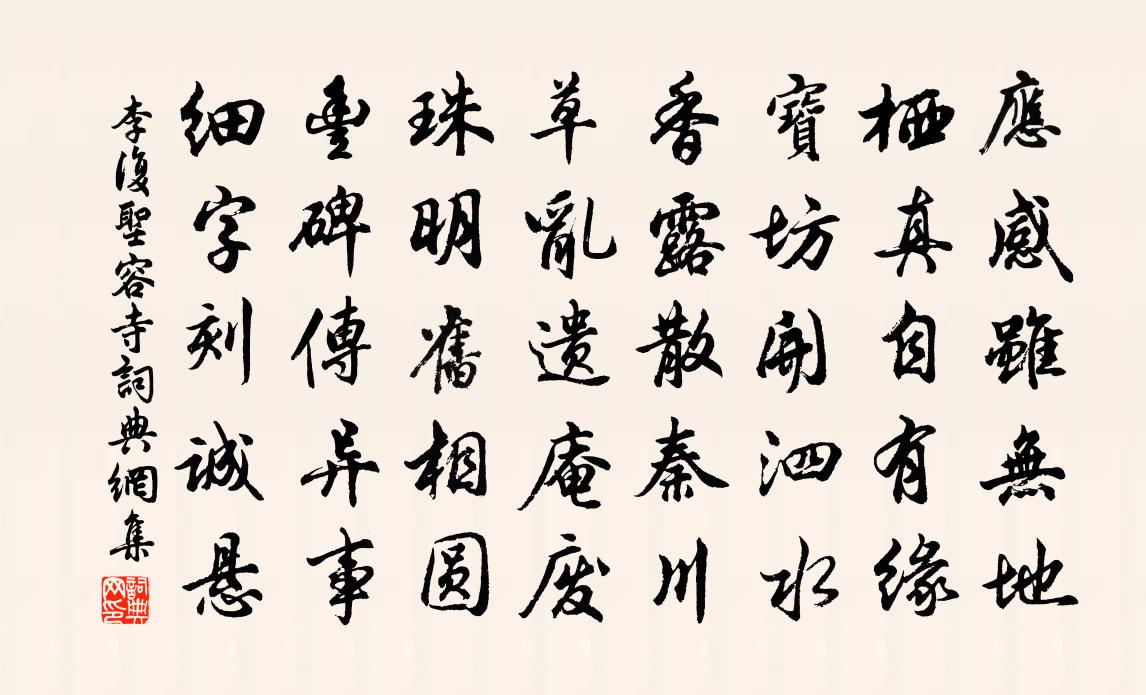 應感雖無地
栖真自有緣
寶坊開泗水
香露散秦川
草亂遺庵废
珠明舊相圆
豊碑傳异事
细字刻诚悬
李復聖容寺詞典網集
詞典网印